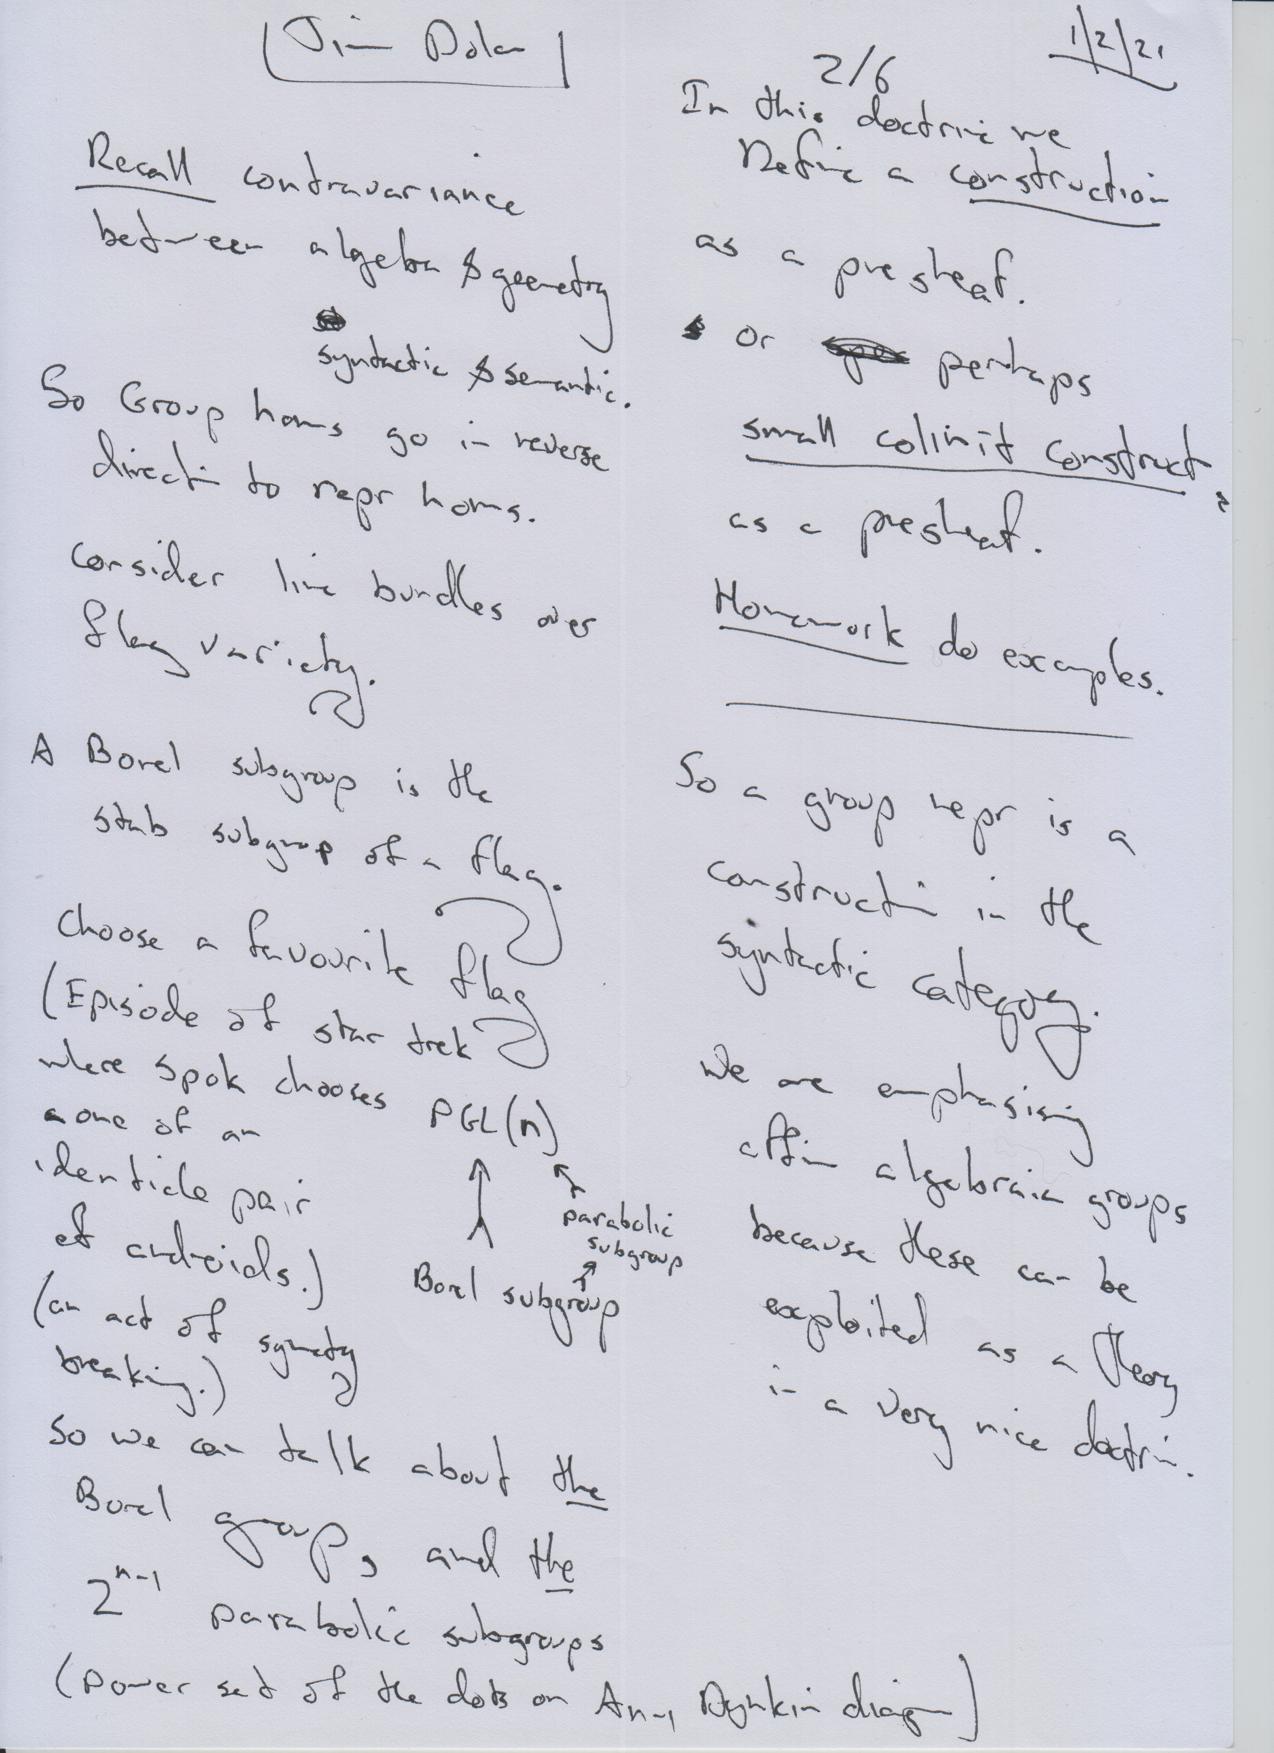 Jim Dolan
1/2/21
2/6
Recall contravariance
between algebra & geometry
syntactic & semantic.
So Group homs go in reverse
directi to repr homs.
Consider line bundles over
flag variety.
A Borel subgroup is the
stab subgroup of a flag.
Choose a favourite flag
(Episode of star trek
where spok chooses
a one of an
identicle pair
of androids.)
(an act of symetry
breaking.)
PGL(n)
parabolic
subgroup
Borel subgroup
So we can talk about the
Borel group, and the
2^{n-1} parabolic subgroups
(power set of the dots on A_{n-1} Dynkin diagm)
In this doctrine we
Define a construction
as a presheaf.
or perhaps
small colimit construct
as a presheaf.
Homework do examples.
So a group repr is a
constructi in the
syntactic category.
We are emphasising
affin algebraic groups
because these can be
exploited as a theory
in a very nice doctrin.